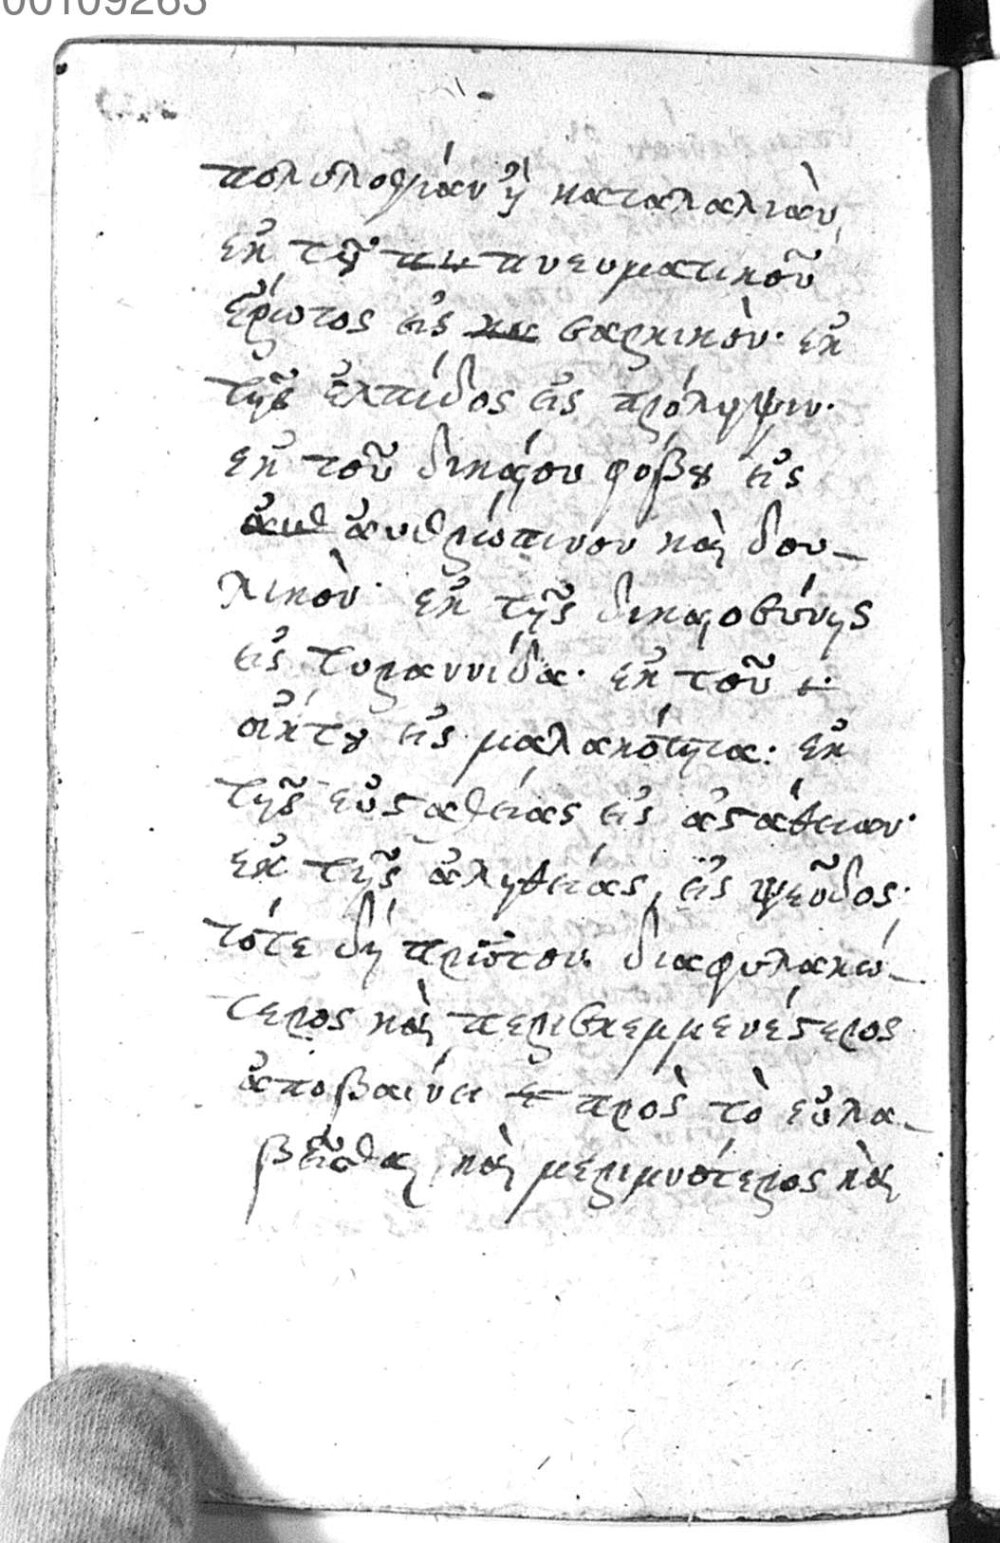 00109263
πολυλογίαν ἢ καταλαλιὰν
ἐκ τοῦ πν πνευματικοῦ
ἔρωτος εἰς κα σαρκικὸν· ἐκ
τῆς ἐλπίδος εἰς πρόληψιν·
ἐκ τοῦ δικαίου φόβου εἰς
ἀνθ ἀνθρώπινον καὶ δου-
λικὸν· ἐκ τῆς δικαιοσύνης
εἰς τυραννίδα· ἐκ τοῦ
οἴκτου εἰς μαλακότητα· ἐκ
τῆς εὐσταθείας εἰς ἀστάθειαν·
ἐκ τῆς ἀληθείας, εἰς ψεῦδος·
τότε δὴ πρῶτον διαφυλακώ-
τερος καὶ περιεσκεμμενέστερος
ἀποβαίνει πρὸς τὸ εὐλα-
βεῖσθαι, καὶ μεριμνότερος καὶ